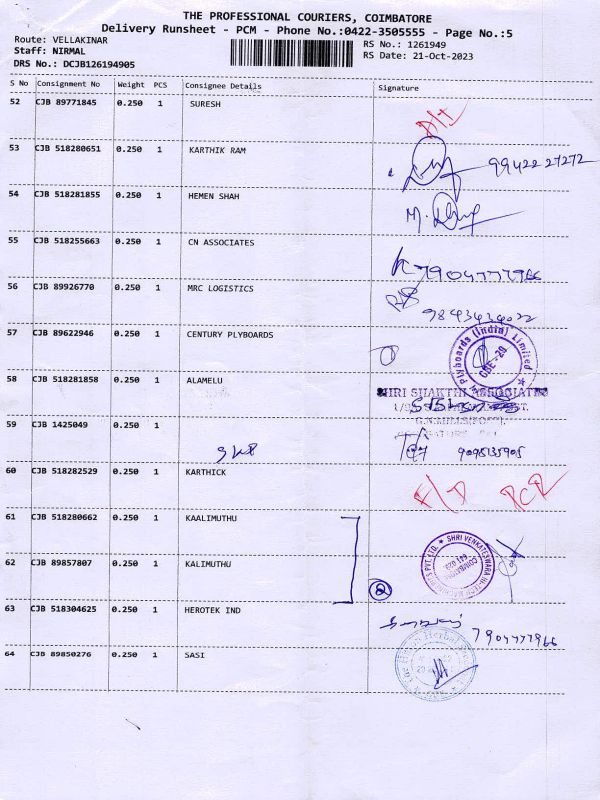 THE PROFESSIONAL COURIERS, COIMBATORE
Delivery Runsheet - PCM - Phone No.:0422-3505555 - Page No.:5
Route: VELLAKINAR
Staff: NIRMAL
DRS No.: DCJB126194905
RS No.: 1261949
RS Date: 21-Oct-2023
S No Consignment No Weight PCS Consignee Details Signature
52 CJB 89771845 0.250 1 SURESH
53 CJB 518280651 0.250 1 KARTHIK RAM 9942227272
54 CJB 518281855 0.250 1 HEMEN SHAH
55 CJB 518255663 0.250 1 CN ASSOCIATES 7904777966
56 CJB 89926770 0.250 1 MRC LOGISTICS
9843434022
57 CJB 89622946 0.250 1 CENTURY PLYBOARDS
Plyboards (India) Limited
CBE-29
58 CJB 518281858 0.250 1 ALAMELU
SHRI SHAKTHI ASSOCIATES
59 CJB 1425049 0.250 1
9095135905
60 CJB 518282529 0.250 1 KARTHICK
61 CJB 518280662 0.250 1 KAALIMUTHU
SHRI VENKATESWARA HI-TECH MACHINERIES PVT. LTD.
COIMBATORE
641 029
62 CJB 89857807 0.250 1 KALIMUTHU
2
63 CJB 518304625 0.250 1 HEROTEK IND
7904777966
64 CJB 89850276 0.250 1 SASI